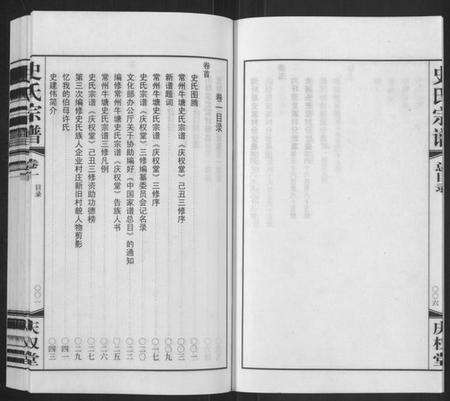 史氏宗谱
总目录
〇〇六
庆权堂
卷一目录
卷首
史氏图腾 〇〇一
常州牛塘史氏宗谱《庆权堂》己丑三修序 〇〇三
新谱题词 〇〇九
常州牛塘史氏宗谱《庆权堂》三修序 〇一七
史氏宗谱《庆权堂》三修编纂委员会记名录 〇一九
文化部办公厅关于协助编好《中国家谱总目》的通知 〇二〇
编修常州牛塘史氏宗谱《庆权堂》告族人书 〇二五
常州牛塘史氏宗谱三修凡例 〇二六
史氏宗谱《庆权堂》己丑三修资助功德榜 〇二七
第三次编修史氏族人企业村庄新旧村貌人物剪影 〇二九
忆我的伯母许氏 〇四一
史建伟简介 〇四三
史氏宗谱
卷一
目录
〇〇一
庆权堂